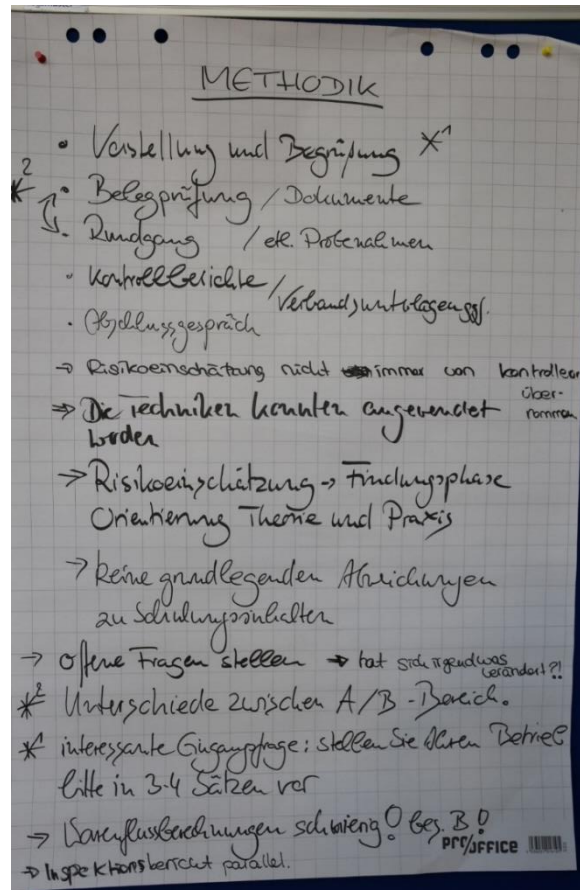 METHODIK
• Vorstellung und Begrüßung *1
*2 • Belegprüfung / Dokumente
• Rundgang / etl. Probenahmen
• Kontrollberichte / Verbandsunterlagen ggf.
• Abschlussgespräch
→ Risikoeinschätzung nicht immer von Kontrolleur
über-
nommen
⇒ Die Techniken konnten angewendet
werden
→ Risikoeinschätzung → Findungsphase
Orientierung Theorie und Praxis
→ keine grundlegenden Abweichungen
zu Schulungsinhalten
→ offene Fragen stellen → hat sich irgendwas
verändert?!
*2 Unterschiede zwischen A/B-Bereich.
*1 interessante Eingangsfrage: stellen Sie Ihren Betrieb
bitte in 3-4 Sätzen vor
→ Warenflussberechnungen schwierig! bes. B!
→ Inspektionsbericht parallel.
PRO/OFFICE